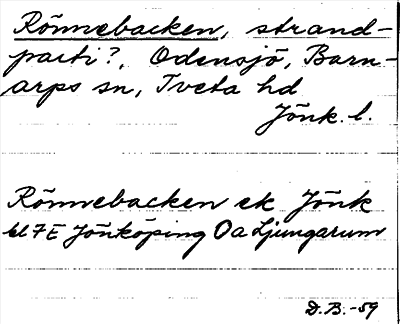 Rönnebacken, strand-
parti?, Odensjö, Barn-
arps sn, Tveta hd
Jönk. l.
Rönnebacken ek Jönk
bl 7E Jönköping Oa Ljungarum
D.B.-59